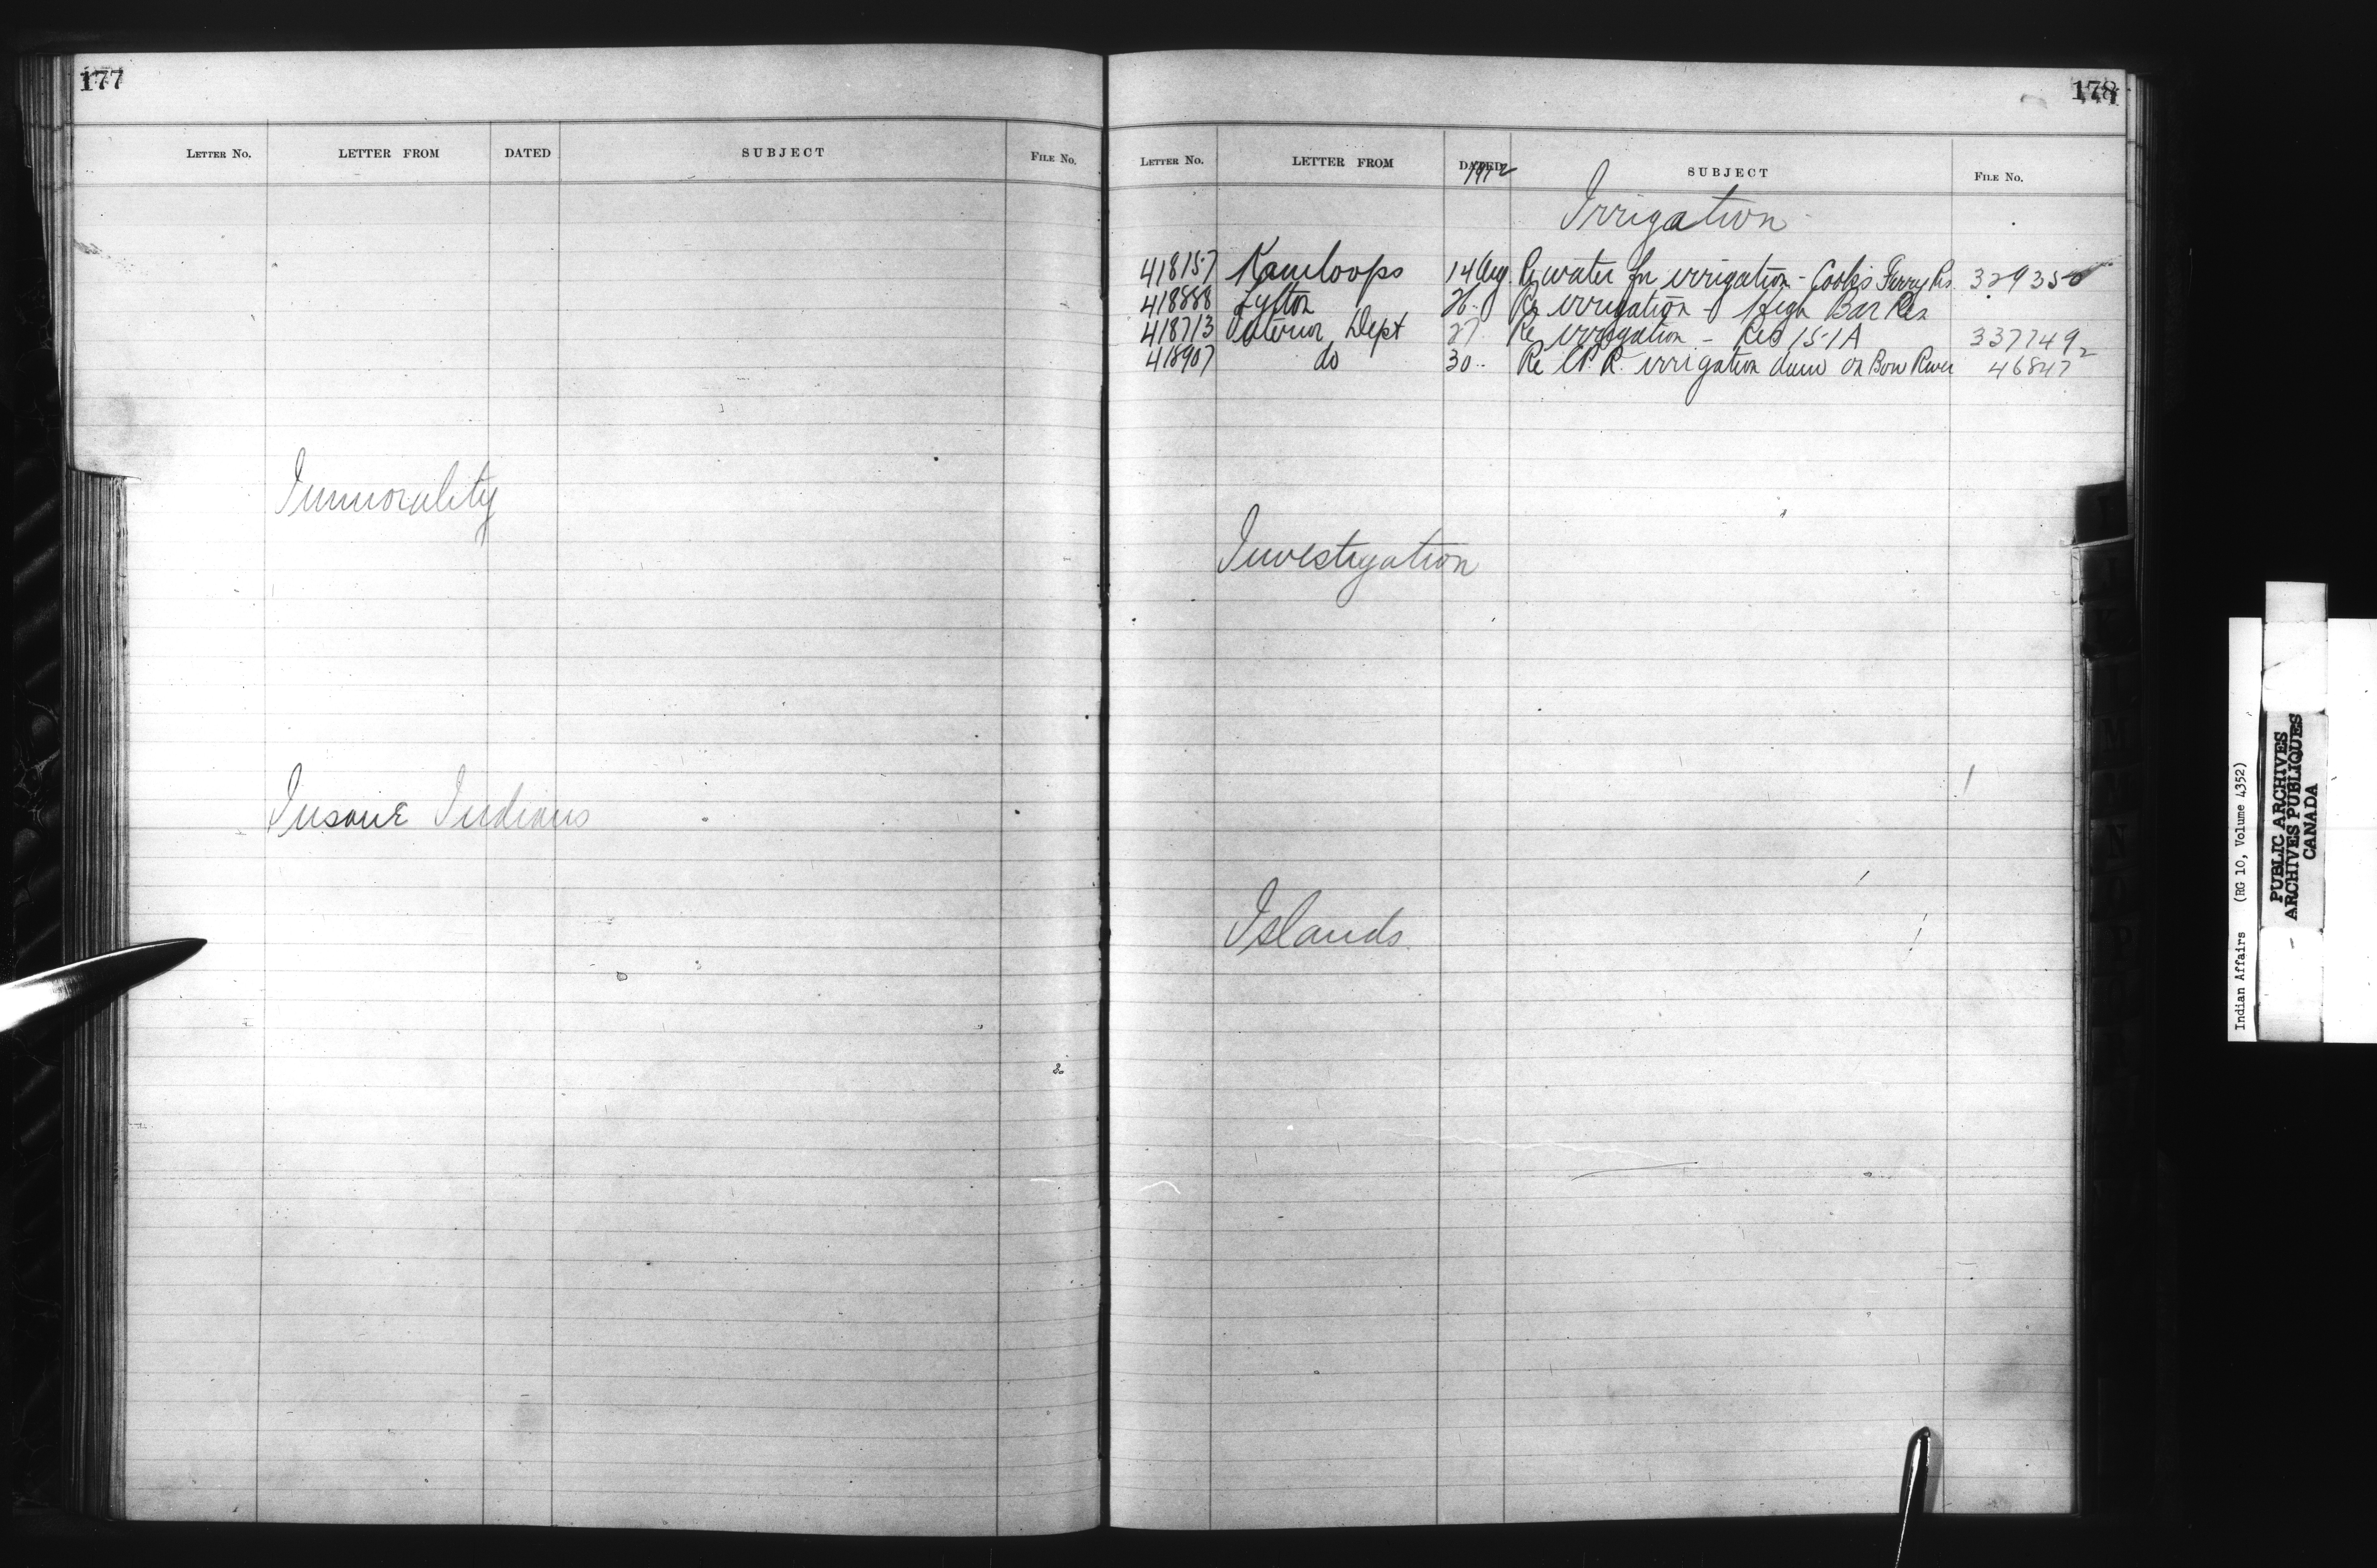 177
LETTER NO. LETTER FROM DATED SUBJECT FILE NO.
Immorality
Insane Indians
178
LETTER NO. LETTER FROM DATED SUBJECT FILE NO.
1912
Irrigation
418157 Kamloops 14 Aug. Re water for irrigation - Cook's Ferry Res 329350
418888 Lytton 26 .. Re irrigation - High Bar Res
418713 Interior Dept 27 Re irrigation - Res 151A 337749
418907 do 30 .. Re C.P.R. irrigation dam on Bow River 46847
Investigation
Islands
L
M
N
P
Indian Affairs (RG 10, Volume 4352)
PUBLIC ARCHIVES
ARCHIVES PUBLIQUES
CANADA